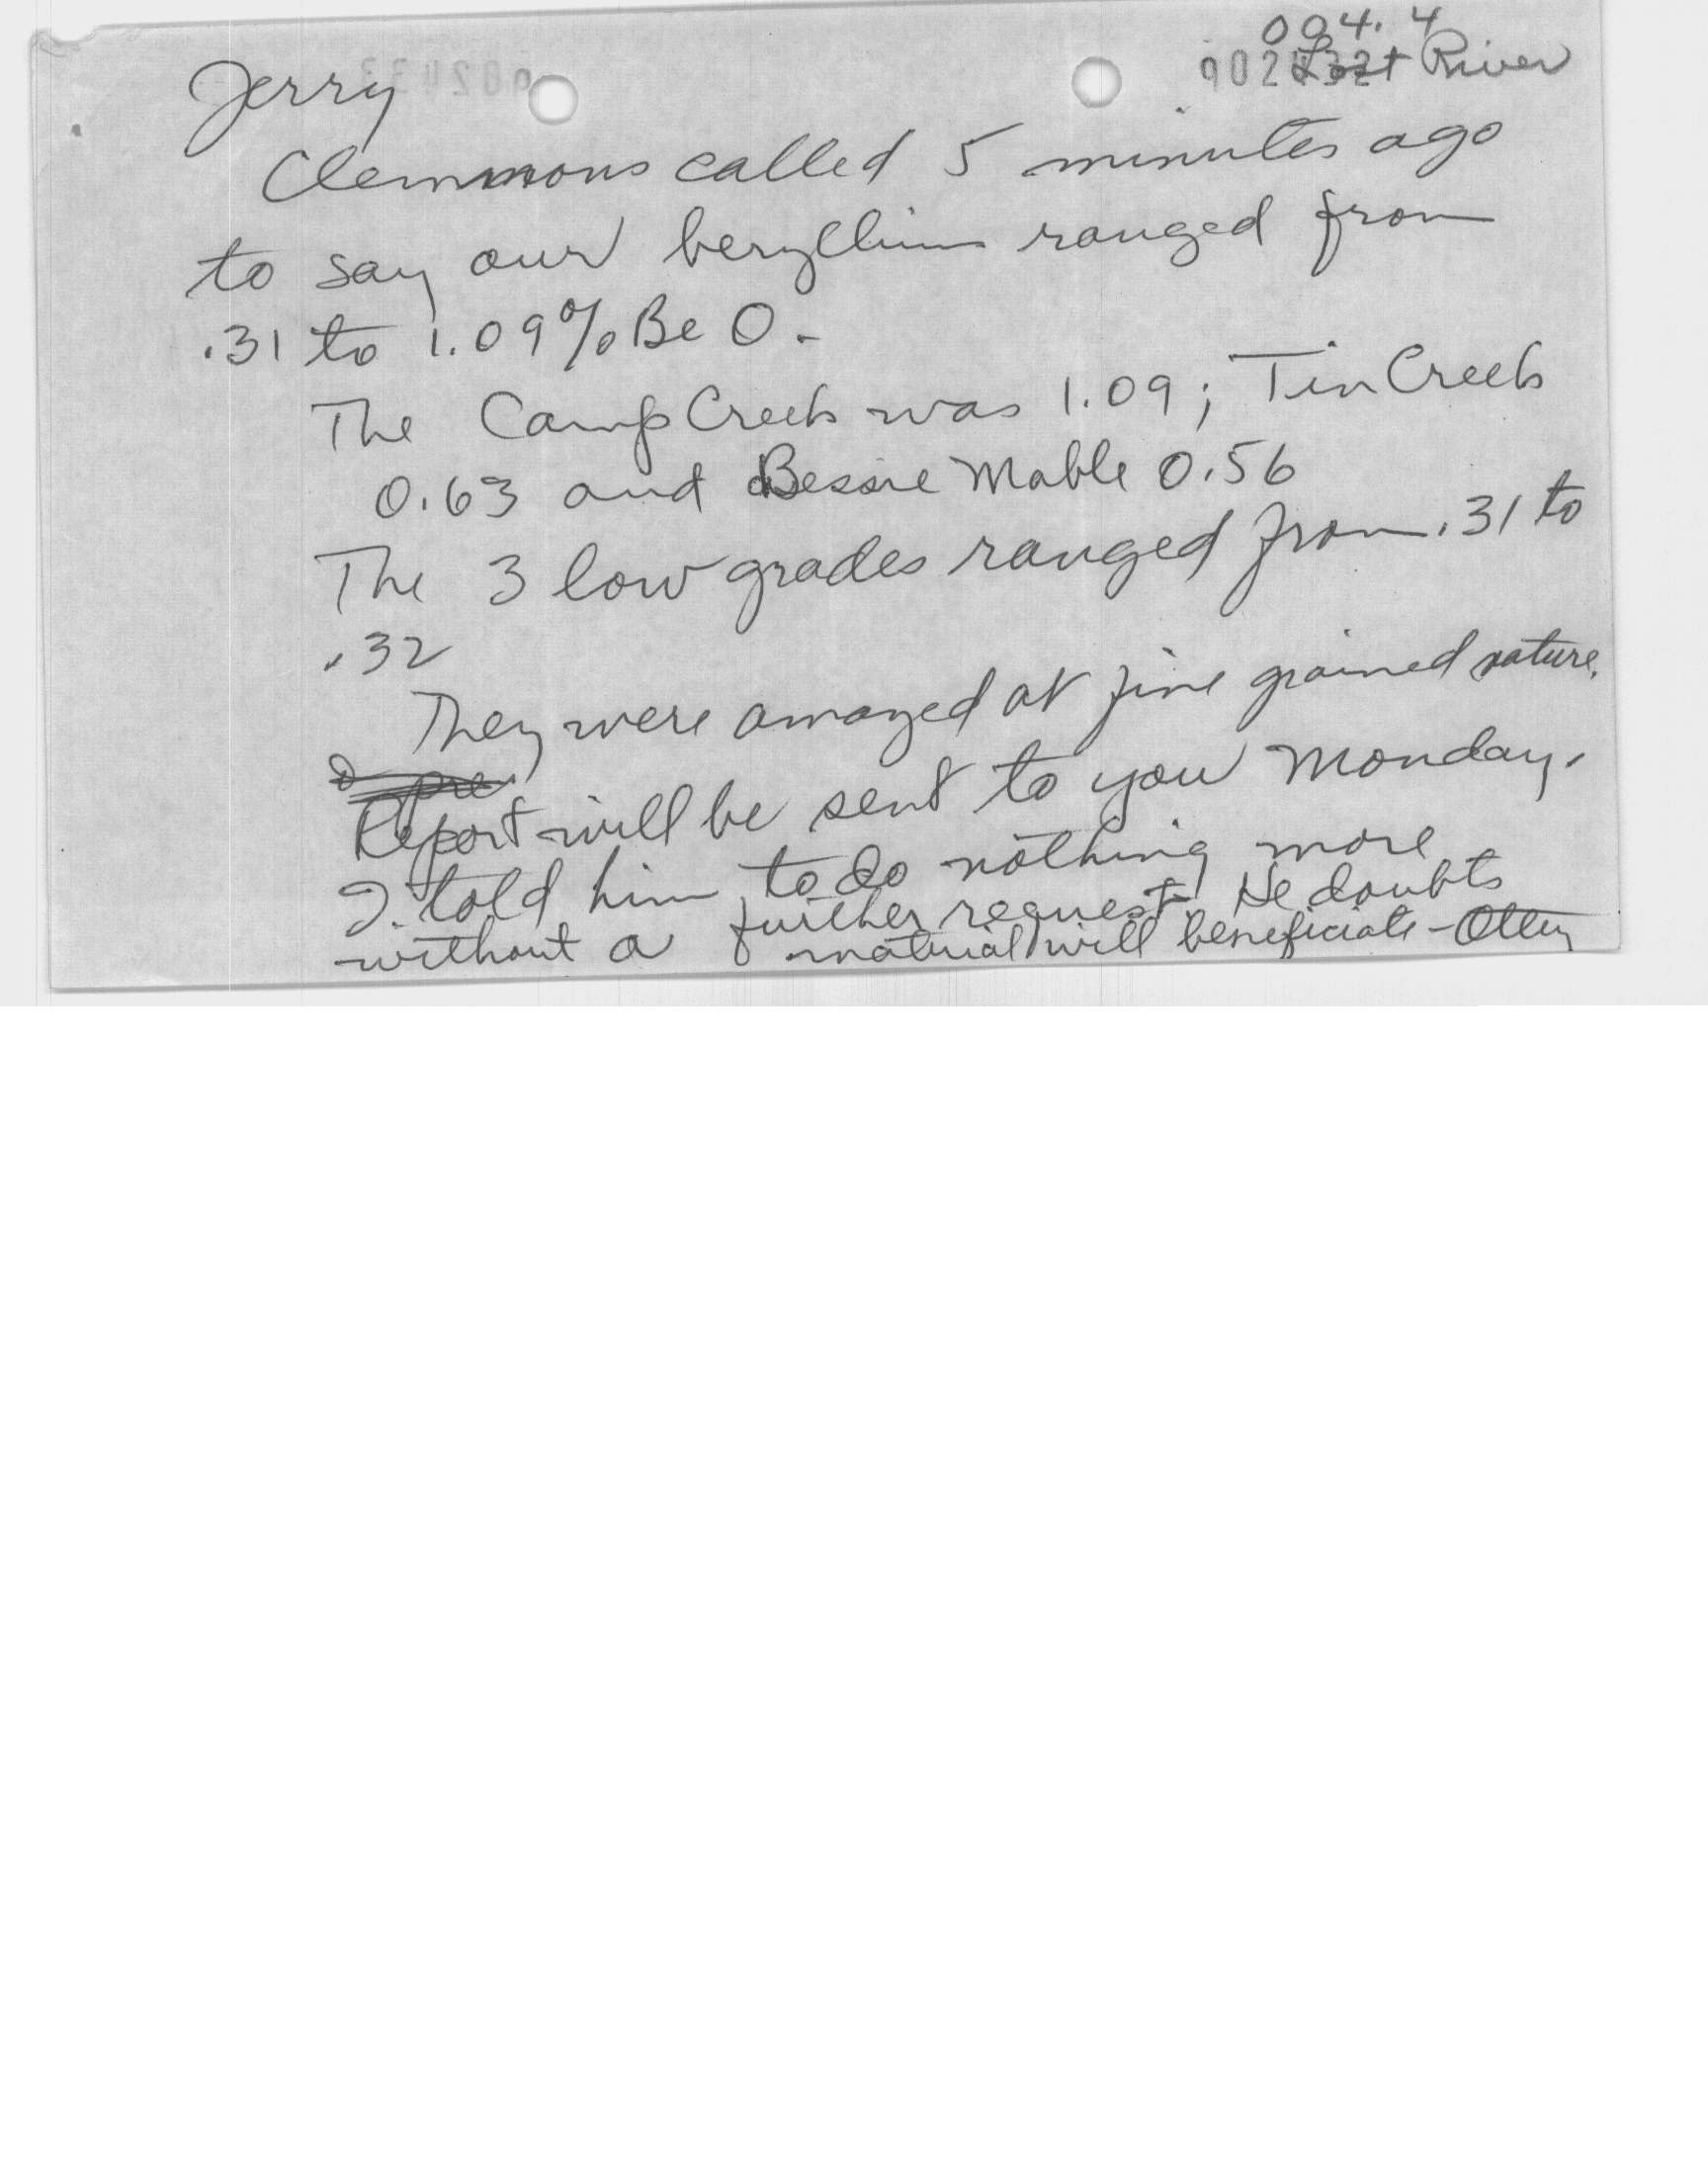 004.4
Lost River
Jerry
Clemmons called 5 minutes ago
to say our beryllium ranged from
.31 to 1.09% Be O.
The Camp Creek was 1.09; Tin Creek
0.63 and Bessie Mable 0.56
The 3 low grades ranged from .31 to
.32
They were amazed at fine grained nature.
Report will be sent to you Monday.
I told him to do nothing more
without a further request. He doubts
material will beneficiate -